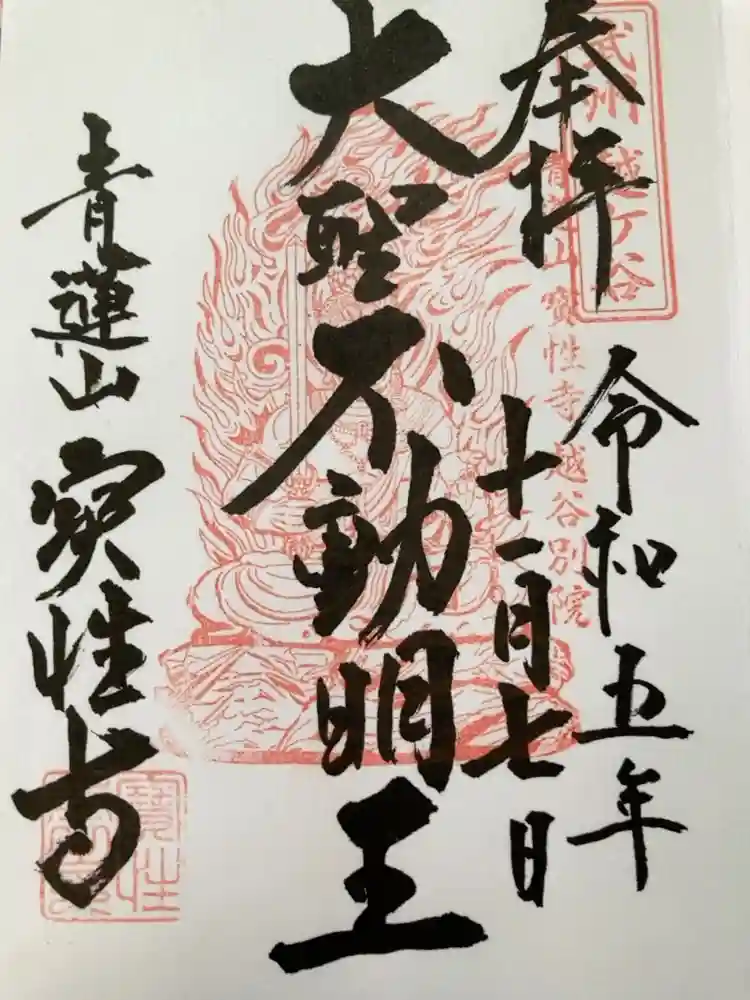 奉拝
武州 越ケ谷
令和五年
青蓮山 寳性寺 越谷別院
十一月七日
大聖不動明王
青蓮山 寳性寺